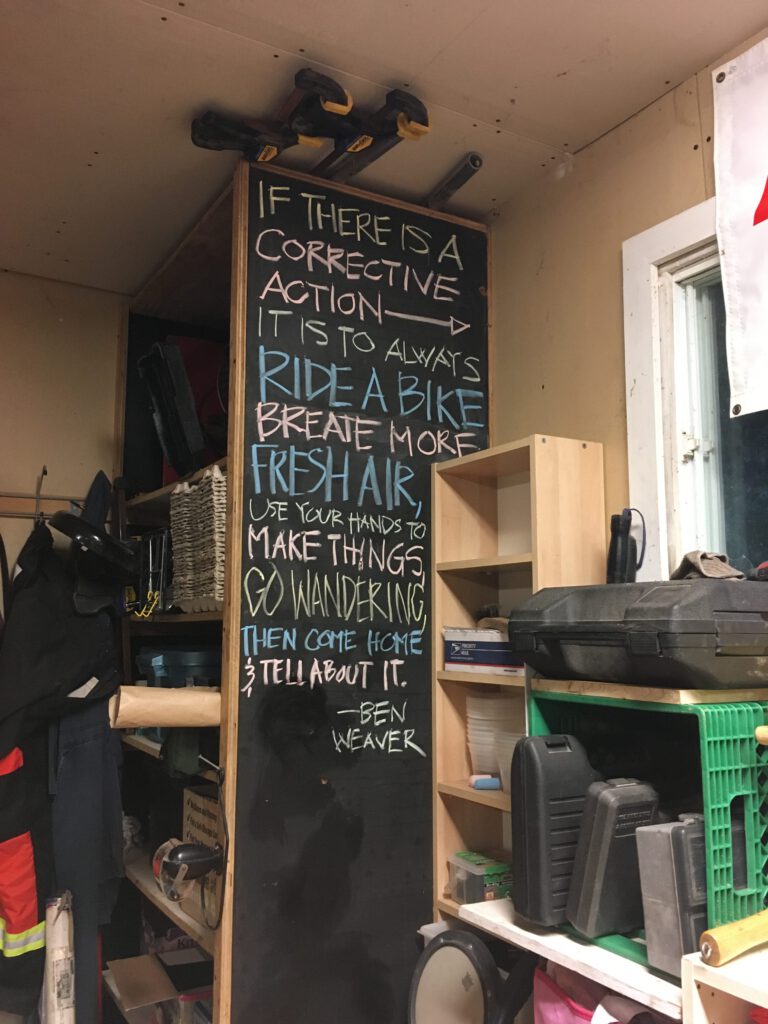 IF THERE IS A
CORRECTIVE
ACTION →
IT IS TO ALWAYS
RIDE A BIKE
BREATE MORE
FRESH AIR,
USE YOUR HANDS TO
MAKE THINGS,
GO WANDERING,
THEN COME HOME
& TELL ABOUT IT.
—BEN
WEAVER
PRIORITY
MAIL